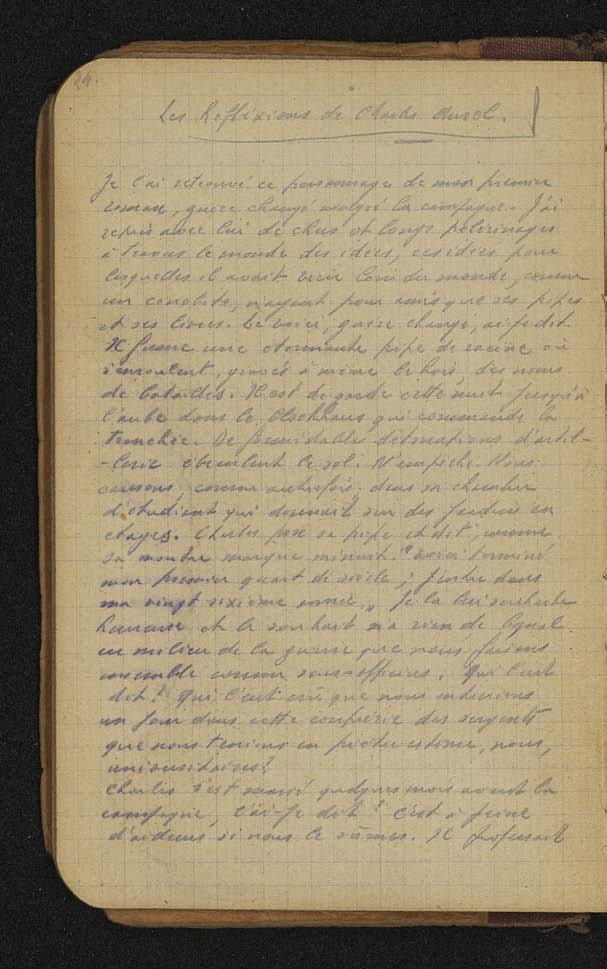 24.
Les Réflexions de Charles Ansel.
Je l'ai retrouvé ce personnage de mon premier
roman, guère changé malgré la campagne. J'ai
repris avec lui de chers et longs pèlerinages
à travers le monde des idées, ces idées pour
lesquelles il avait vécu loin du monde, comme
un cénobite, n'ayant pour amis que ses pipes
et ses livres. Le voici, guère changé, ai-je dit.
Il fume une étonnante pipe de racine où
s'enroulent, gravés à même le bois des noms
de batailles. Il est de garde cette nuit jusqu'à
l'aube dans le blockhaus qui commande la
tranchée. De formidables détonations d'artil-
-lerie ébranlent le sol. N'empêche. Nous
causons, comme autrefois, dans sa chambre
d'étudiant qui donnait sur des jardins en
étages. Charles pose sa pipe et dit, comme
sa montre marque minuit: "Voici terminé
mon premier quart de siècle; j'entre dans
ma vingt sixième année". Je la lui souhaite
heureuse et le souhait n'a rien de banal
au milieu de la guerre que nous faisons
ensemble comme sous-officiers. Qui l'eût
dit! Qui l'eût cru que nous entrerions
un jour dans cette confrérie des sergents
que nous tenions en piètre estime, nous,
universitaires?
Charles s'est marié quelques mois avant la
campagne, l'ai-je dit? C'est à peine
d'ailleurs si nous le sûmes. Il professait